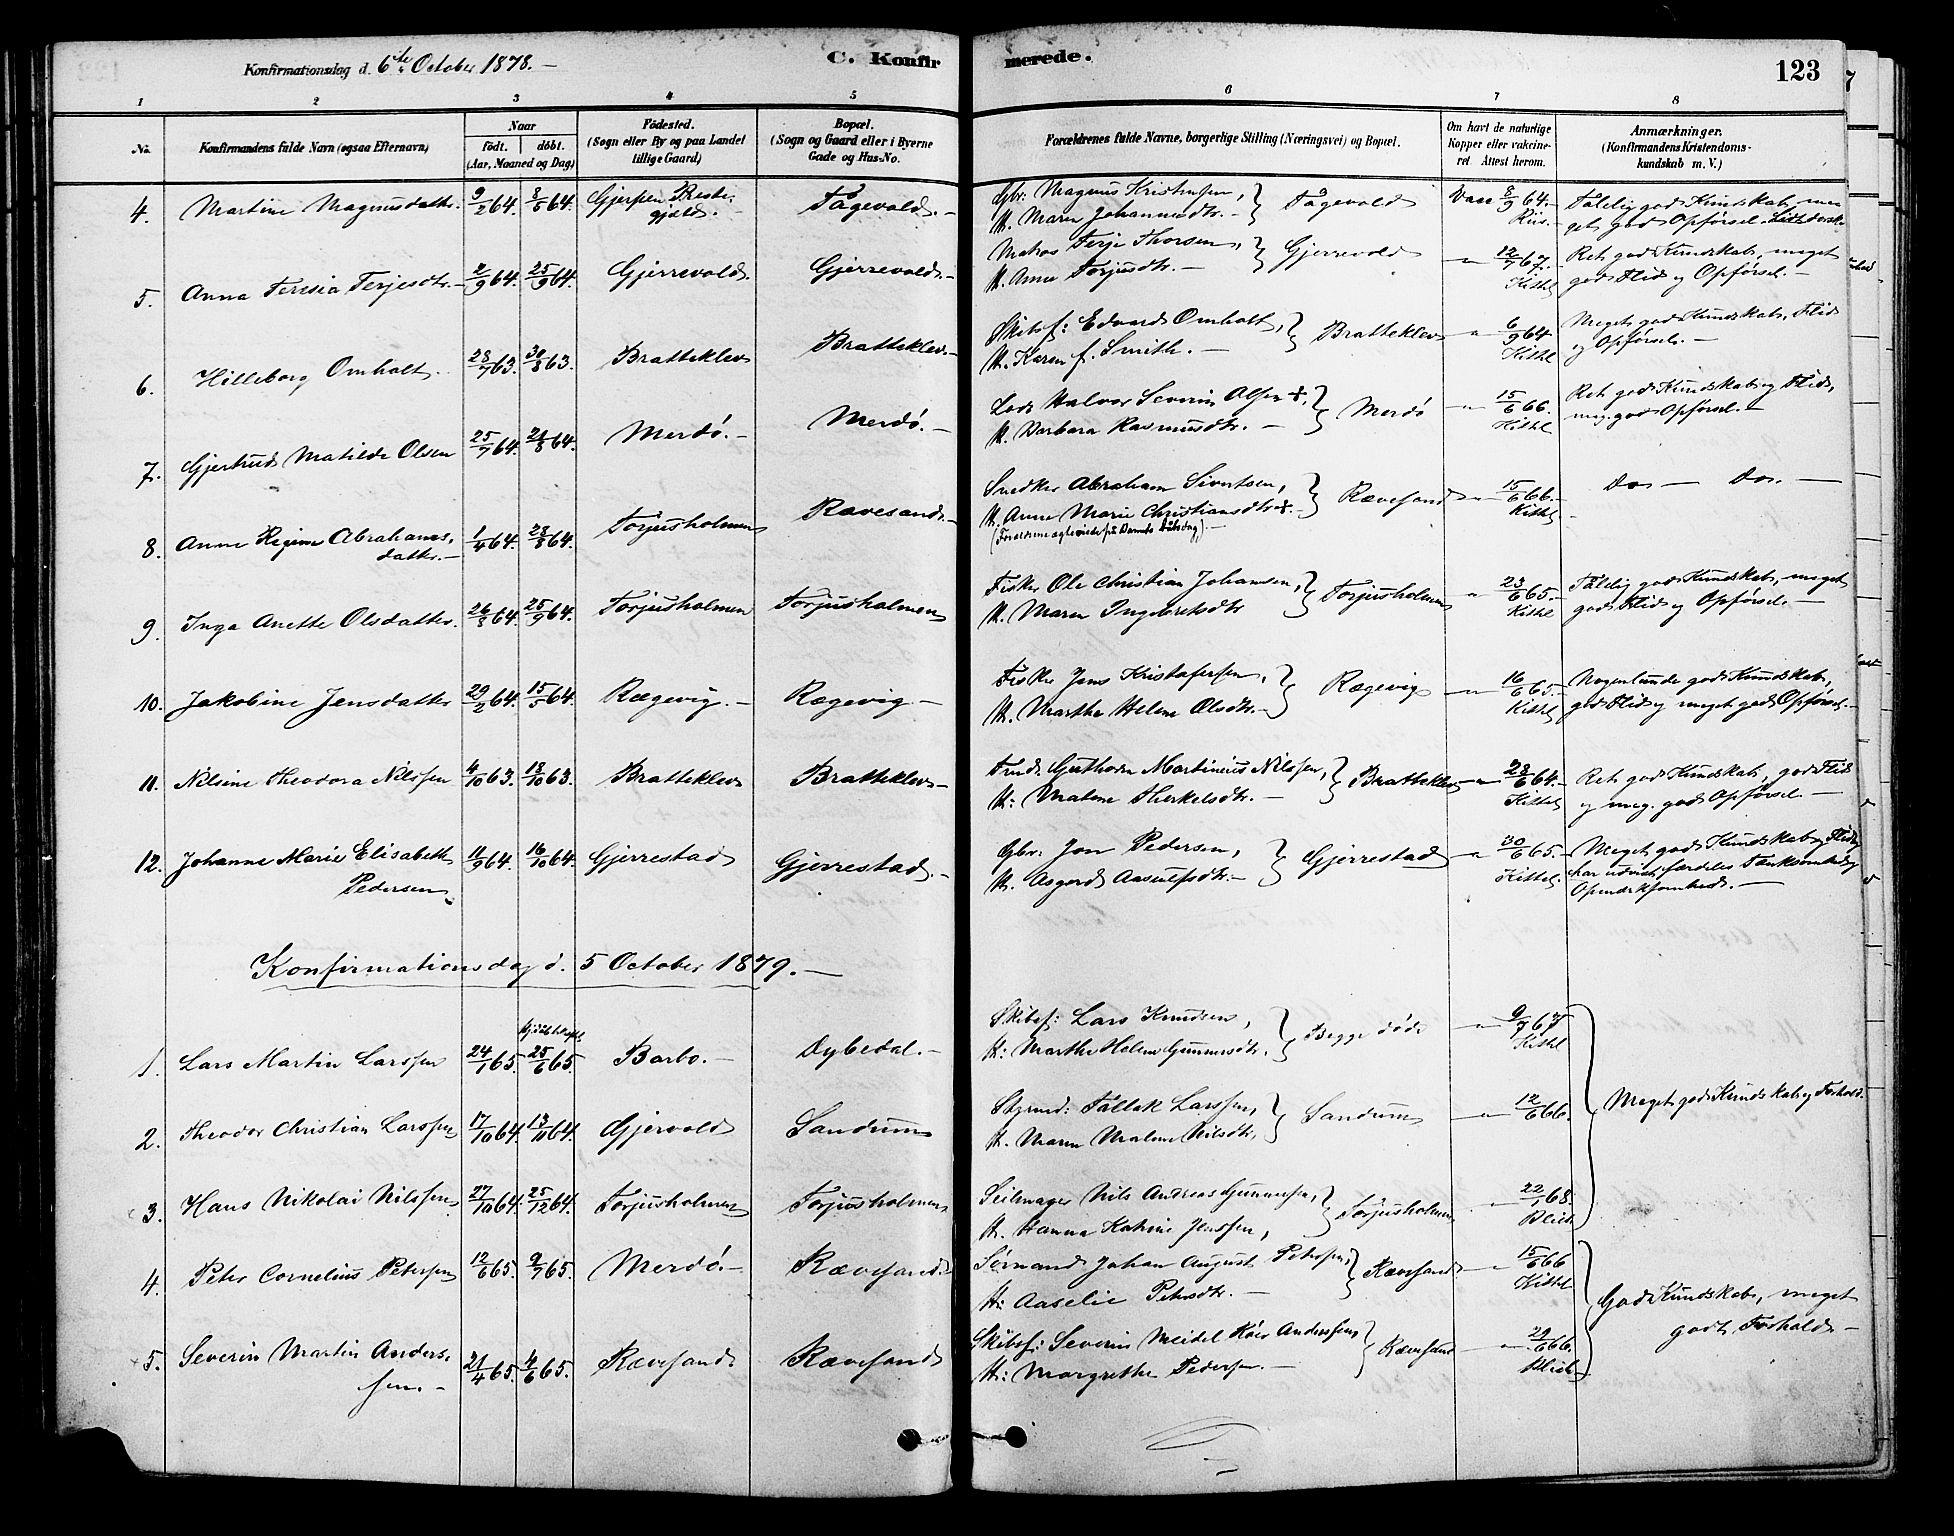 Konfirmationsdag d. 6te October 1878.—
C. Konfirmerede.
123
1 2 3 4 5 6 7 8
No.
Konfirmandens fulde Navn (ogsaa Efternavn)
Naar
födt. döbt.
(Aar, Maaned og Dag)
Födested.
(Sogn eller By og paa Landet
tillige Gaard)
Bopæl.
(Sogn og Gaard eller i Byerne
Gade og Hus-No.
Forældrenes fulde Navne, borgerlige Stilling (Næringsvei) og Bopæl.
Om havt de naturlige
Kopper eller vakcine-
ret Attest herom.
Anmærkninger.
(Konfirmandens Kristendoms-
kundskab m. V.)
4. Martine Magnusdatter. 9/2 64. 8/5 64. Gjerpen Præste- Tågevold.—
gjeld.
Gbr: Magnus Kristensen,
H. Maren Johannesdtr.— } Tågevold Vacc 8/9 64.—
Riis.
Tålelig god Kundskab, me
get god Opførsel.
5. Anna Teresia Terjesdtr.— 2/9 64. 25/9 64. Gjerrevold. Gjerrevold.—
Matros Terje Thorsen,
H. Anne Torjusdtr.— } Gjerrevold " 12/7 67.
Kittel
Ret god Kundskab, meget
god Flid og Opførsel.—
6. Hilleborg Omholt. 28/7 63. 30/8 63. Bratteklev Bratteklev.—
Skibsf: Edvard Omholt,
H. Karen f. Smith.— } Bratteklev " 6/9 64
Kittel
Meget god Kundskab, Flid
og Opførsel.—
7. Gjertrud Matilde Olsen 25/7 64. 21/8 64. Merdö.— Merdö.—
Lods Halvor Severin Olsen,
H. Barbara Rasmusdtr.— } Merdö " 15/6 66.
Kittel
Ret god Kundskab og Flid,
meg. god Opførsel.—
8. Anne Regine Abrahams- 1/4 64. 28/8 64. Torjusholmen Rævesand.—
datter.—
Snedker Abraham Sivertsen,
H. Anne Marie Christiansdtr. } Rævesand " 15/6 66.—
Kittel
Do — Do. —
9. Inga Anette Olsdatter. 26/8 64. 25/9 64. Torjusholmen Torjusholmen
Fisker Ole Christian Johansen,
H. Maren Ingebretsdtr } Torjusholmen " 23/6 65.—
Kittel
Tålelig god Kundskab, meget
god Flid og Opførsel.—
10. Jakobine Jensdatter 29/2 64. 15/5 64. Rægevig.— Rægevig.—
Fisker Jens Kristofersen,
H. Marthe Helene Olsdtr.— } Rægevig " 16/6 65.—
Kittel
Nogenlunde god Kundskab,
god Flid og meget god Opførsel.—
11. Nilsine Theodora Nilssen 4/10 63. 18/10 63. Bratteklev Bratteklev—
Guthorm Martinius Nilssen,
H: Malene Therkelsdtr.— } Bratteklev " 28/6 64.—
Kittel
Ret god Kundskab, god Flid
og meg. god Opførsel.—
12. Johanne Marie Elisabeth 11/9 64. 16/10 64. Gjerrestad Gjerrestad.—
Pedersen
Gbr. Jon Pedersen,
H. Asgerd Aasulfsdtr.— } Gjerrestad " 30/6 65.—
Kittel
Meget god Kundskab, Flid,
har udvist særdeles
Opmerksomhed.—
Konfirmationsdag d. 5 October 1879.—
1. Lars Martin Larssen 24/1 65. 25/6 65. Barbo.— Dybedal.—
Skibsf: Lars Knudsen,
H: Marthe Helene Gunnersdtr. } Begge döde — " 9/7 67
Kittel
2. Theodor Christian Larssen 17/10 64. 13/11 64. Gjervold Sandum
Styrmd: Tallak Larssen,
H. Maren Malene Nilsdtr, } Sandum — " 12/6 66.
Meget god Kundskab og Forhold.
3. Hans Nikolai Nilssen 27/10 64. 25/12 64. Torjusholmen Torjusholmen
Seilmager Nils Andreas Gunnersen,
H. Hanna Katrine Jenssen, } Torjusholmen " 22/1 68.
Blich
4. Peter Cornelius Petersen 12/6 65. 9/7 65. Merdö.— Rævesand.
Sömand Johan August Petersen,
H: Aaselie Petersdtr.— } Rævesand — " 15/6 66
Kittel
God Kundskab, meget
godt Forhold.—
5. Severin Martin Anders- 21/4 65. 4/6 65. Rævesand Rævesand
sen.—
Skibsf: Severin Meidel Andersen,
H: Margrethe Pedersen.— } Rævesand — " 29/6 66.
Blich